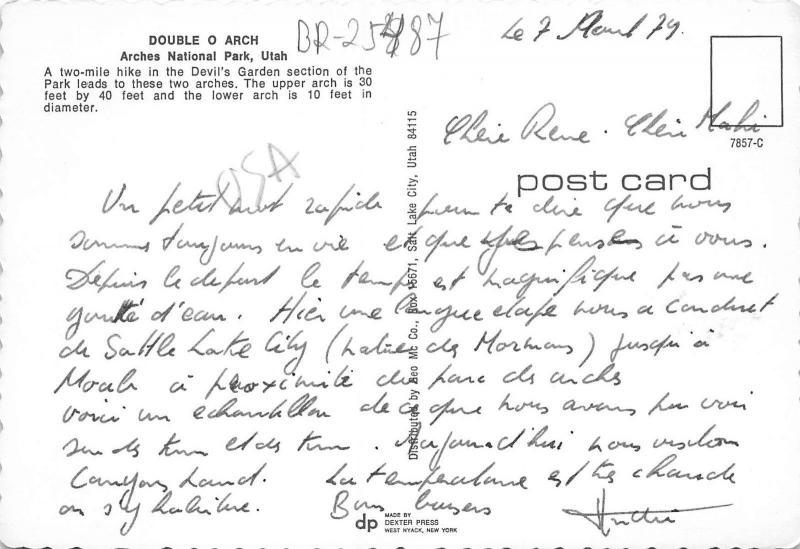 DOUBLE O ARCH
Arches National Park, Utah
A two-mile hike in the Devil's Garden section of the
Park leads to these two arches. The upper arch is 30
feet by 40 feet and the lower arch is 10 feet in
diameter.
Le 7 79
7857-C
post card
USA
Chère Rene. Chère
Un petit mot rapide pour te dire que nous
sommes toujours en vie et que pensons à vous.
Depuis le depart le temps est magnifique pas une
goutte d'eau. Hier une longue etape nous a conduit
de Saltle Lake City ( des Mormons) jusqu'à
Moab à proximité du parc des arches
voici un echantillon de ce que nous avons pu voir
sur des km et des km. Aujourd'hui nous visitons
Canyon Land. La temperature est très chaude
on s'y habitue. Bons baisers
Distributed by Geo Mc Co., Box 15671, Salt Lake City, Utah 84115
dp MADE BY
DEXTER PRESS
WEST NYACK, NEW YORK